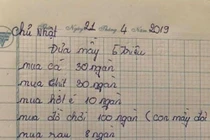 Chủ Nhật Ngày 21 Tháng 4 Năm 2019
Đưa mày 5 triệu
mua cá 30 ngàn
mua thịt 30 ngàn
mua hột é 10 ngàn
mua đồ chơi 100 ngàn ( con mày đòi
mua rau 8 ngàn